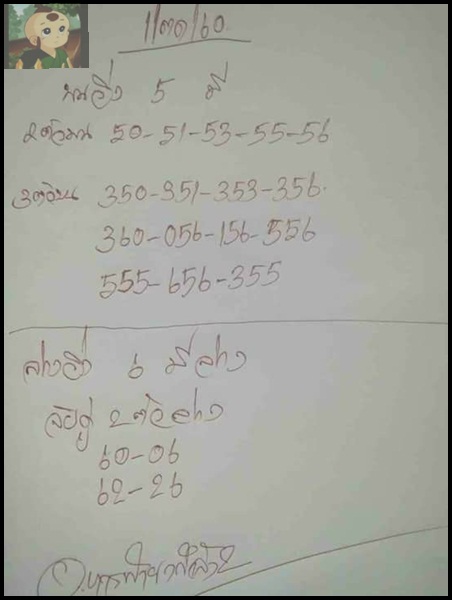 1/ตค/60
บนวิ่ง 5 มี
2ตัวบน 50-51-53-55-56
3ตัวบน 350-351-353-356.
360-056-156-556
555-656-355
ล่างวิ่ง 6 มีล่าง
2ตัวล่าง
60-06
62-26